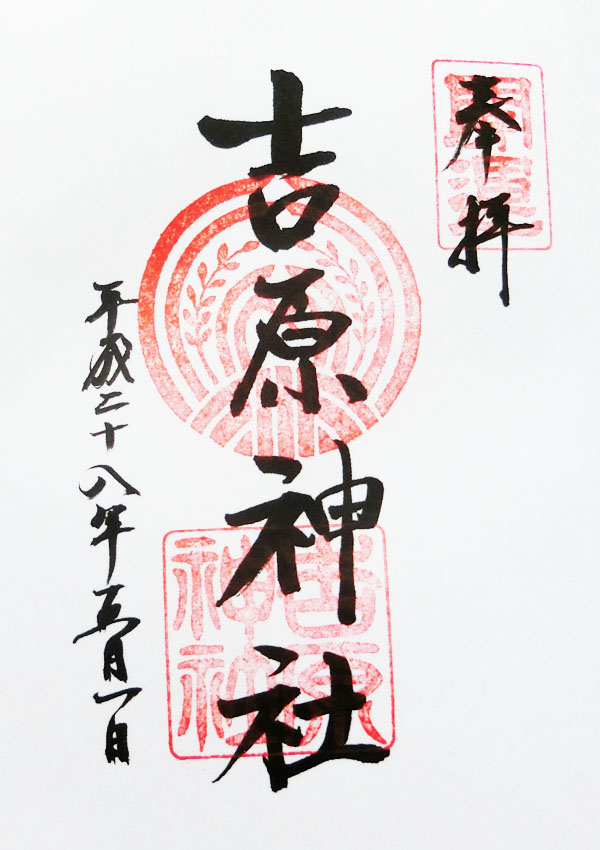 奉拝
開運
吉原神社
吉原神社
平成二十八年五月一日